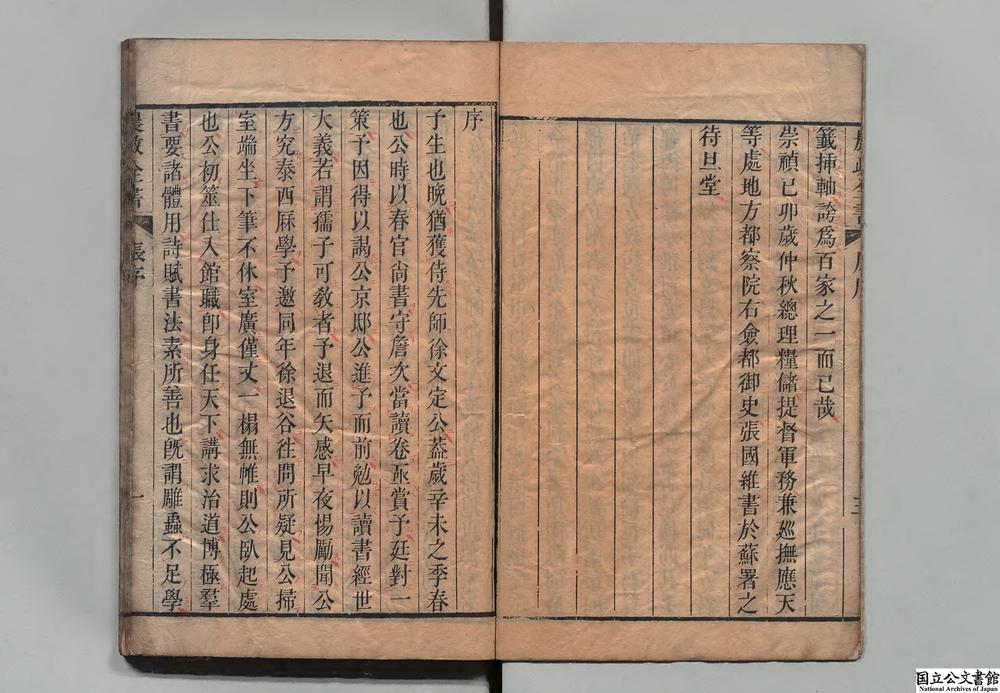 籤揷軸誇爲百家之一而已哉
崇禎己卯歲仲秋總理糧儲提督軍務兼廵撫應天
等處地方都察院右僉都御史張國維書於蘇署之
待旦堂
序
予生也晚猶獲侍先師徐文定公葢歲辛未之季春
也公時以春官尚書守詹次當讀卷亟賞予廷對一
策予因得以謁公京邸公進予而前勉以讀書經世
大義若謂孺子可敎者予退而矢感早夜惕勵聞公
方究泰西厤學予邀同年徐退谷徃問所疑見公掃
室端坐下筆不休室廣僅丈一榻無帷則公臥起處
也公初筮仕入館職卽身任天下講求治道博極羣
書要諸體用詩賦書法素所善也旣謂雕蟲不足學
農政全書
張序
一
国立公文書館
National Archives of Japan